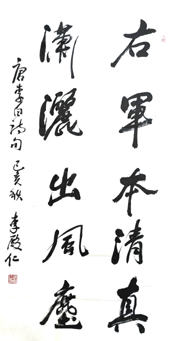 右軍本清真
瀟灑出風塵
唐李白詩句 己亥秋 李殿仁